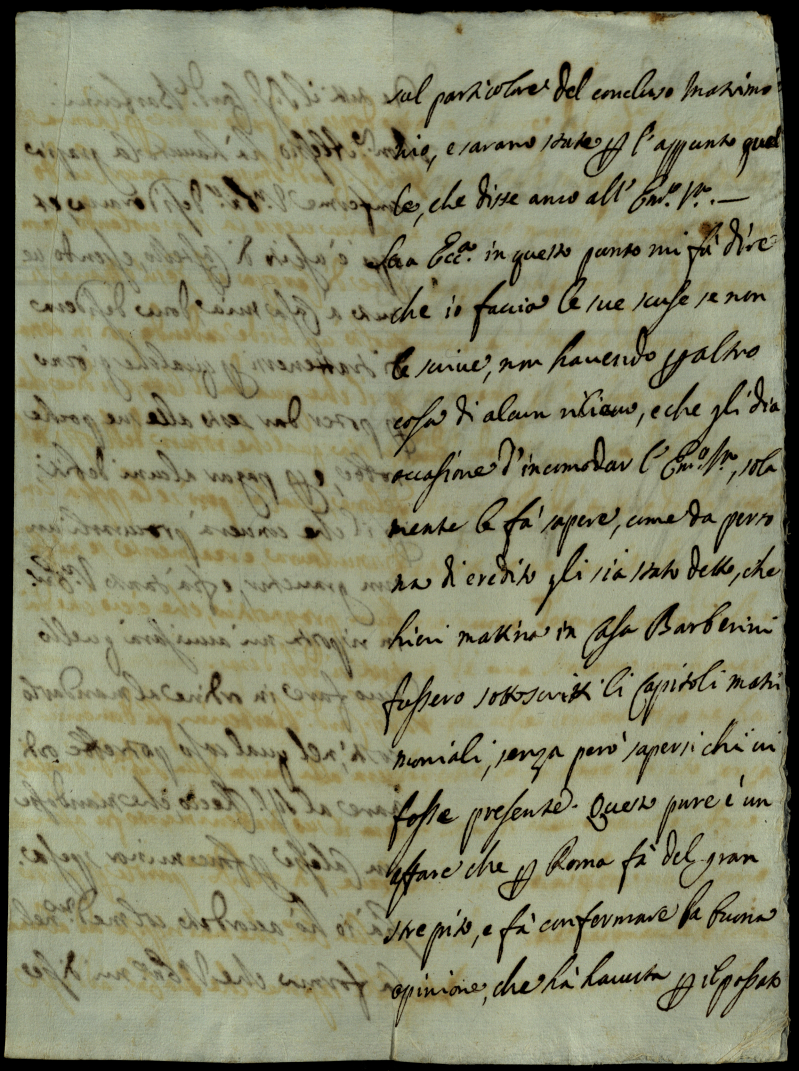 sul particolare del concluso Matrimo
nio, e sarano state p l'appunto quel
le, che disse anco all' Em.ª V.ª —
Sua Ecc.ª in questo punto mi fà dire
che io faccia le sue scuse se non
le scrive, non havendo p altro
cosa di alcun rilievo, e che gli dia
occasione d'incomodar l' Em.ª V.ª, sola
mente le fà sapere, come da perso
na di credito gli sia stato detto, che
hieri mattina in Casa Barberini
fussero sottoscritti li Capitoli matri
moniali, senza però sapersi chi vi
fosse presente. Questo pure è un
affare che p Roma fà del gran
strepito, e fà confermare la buona
opinione, che hà havuta p il passato